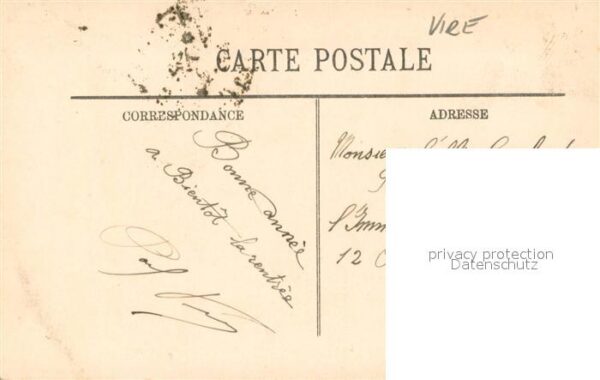 VIRE
CARTE POSTALE
CORRESPONDANCE
ADRESSE
Bonne année
a Bientôt la rentrée
Monsie
l'Imm
12
privacy protection
Datenschutz